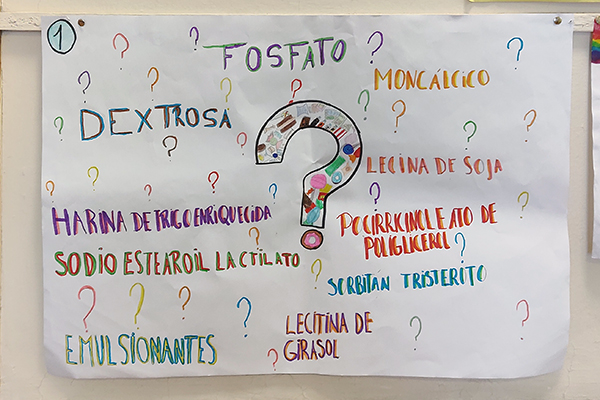 1
FOSFATO
MONCÁLCICO
DEXTROSA
LECINA DE SOJA
HARINA DE TRIGO ENRIQUECIDA
POCIRRICINCLEATO DE
POLIGLICEROL
SODIO ESTEAROIL LACTILATO
SORBITÁN TRISTERITO
LECITINA DE
GIRASOL
EMULSIONANTES